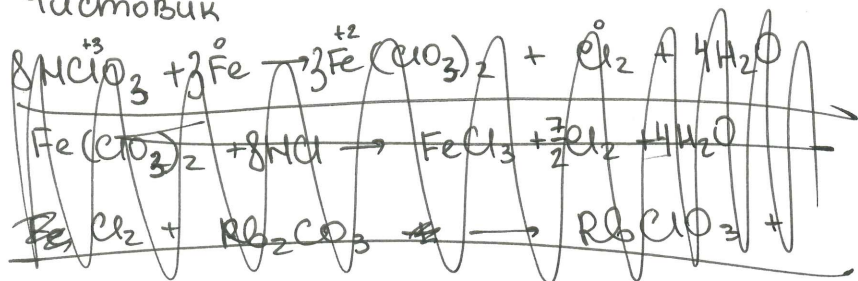 Чистовик
8HClO₃ + 3Fe → 3Fe(ClO₃)₂ + Cl₂ + 4H₂O
Fe(ClO₃)₂ + 8HCl → FeCl₃ + 7/2 Cl₂ + 4H₂O
Cl₂ + Rb₂CO₃ → RbClO₃ +